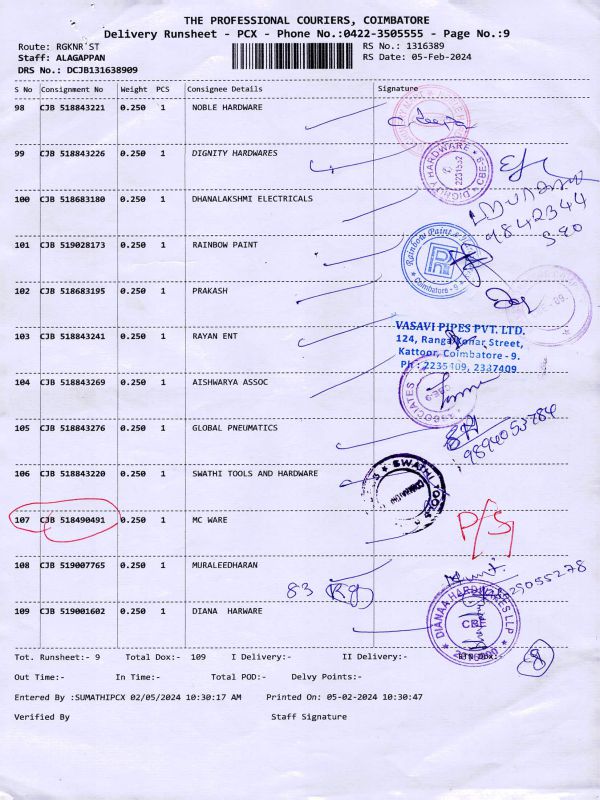 THE PROFESSIONAL COURIERS, COIMBATORE
Delivery Runsheet - PCX - Phone No.:0422-3505555 - Page No.:9
Route: RGKNR`ST RS No.: 1316389
Staff: ALAGAPPAN RS Date: 05-Feb-2024
DRS No.: DCJB131638909
S No Consignment No Weight PCS Consignee Details Signature
98 CJB 518843221 0.250 1 NOBLE HARDWARE
99 CJB 518843226 0.250 1 DIGNITY HARDWARES
DIGNITY HARDWARE CBE-9 2231532
100 CJB 518683180 0.250 1 DHANALAKSHMI ELECTRICALS
9842344
101 CJB 519028173 0.250 1 RAINBOW PAINT
Rainbow Paint & Coimbatore - 9
102 CJB 518683195 0.250 1 PRAKASH
VASAVI PIPES PVT. LTD.
103 CJB 518843241 0.250 1 RAYAN ENT
124, Rangai Konar Street,
Kattoor, Coimbatore - 9.
Ph : 2235409, 2337409
104 CJB 518843269 0.250 1 AISHWARYA ASSOC
ASSOCIATES
105 CJB 518843276 0.250 1 GLOBAL PNEUMATICS
9894053784
106 CJB 518843220 0.250 1 SWATHI TOOLS AND HARDWARE
SWATHI TOOLS
107 CJB 518490491 0.250 1 MC WARE
P/S
108 CJB 519007765 0.250 1 MURALEEDHARAN
83 Kg
109 CJB 519001602 0.250 1 DIANA HARWARE
DIANAA HARDWARES LLP CBE
Tot. Runsheet:- 9 Total Dox:- 109 I Delivery:- II Delivery:-
Out Time:- In Time:- Total POD:- Delvy Points:-
Entered By :SUMATHIPCX 02/05/2024 10:30:17 AM Printed On: 05-02-2024 10:30:47
Verified By Staff Signature